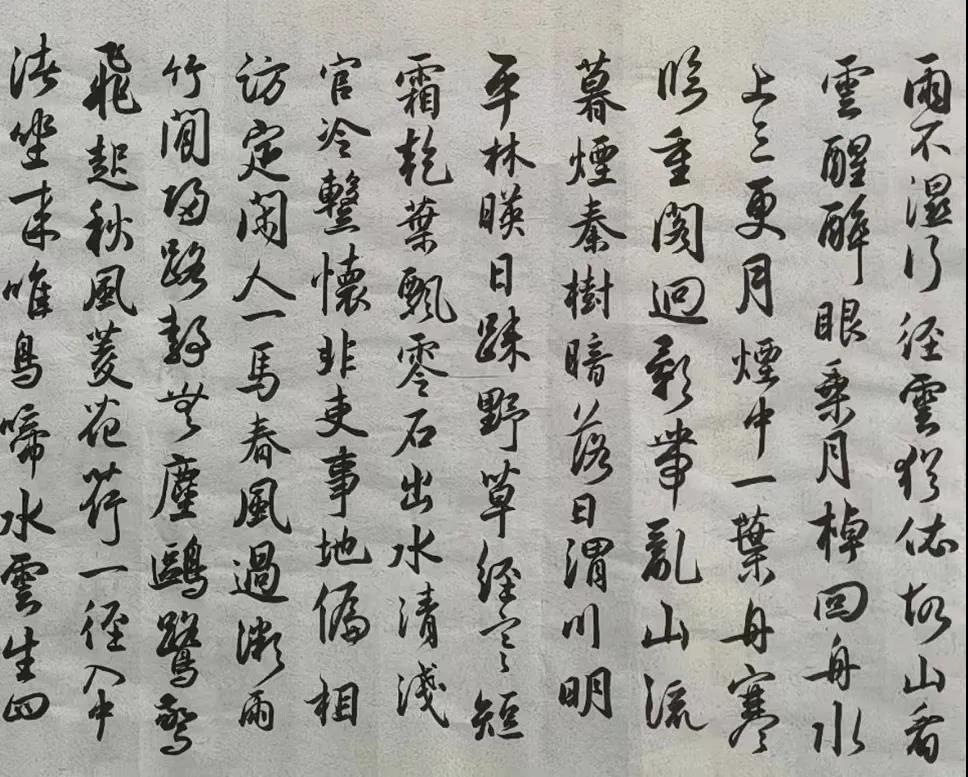 雨不濕行徑雲猶依故山看
雲醒醉眼乘月棹回舟水
上三更月煙中一葉舟寒
吟重閣迥影帶亂山流
暮煙秦樹暗落日渭川明
平林暎日疎野草經寒短
霜乾葉飄零石出水清淺
官冷懷非吏事地偏相
訪定閑人一馬春風過雨
竹間歸路靜無塵鷗鷺驚
飛起秋風菱花荇一徑入中
渚坐來唯鳥啼水雲生四